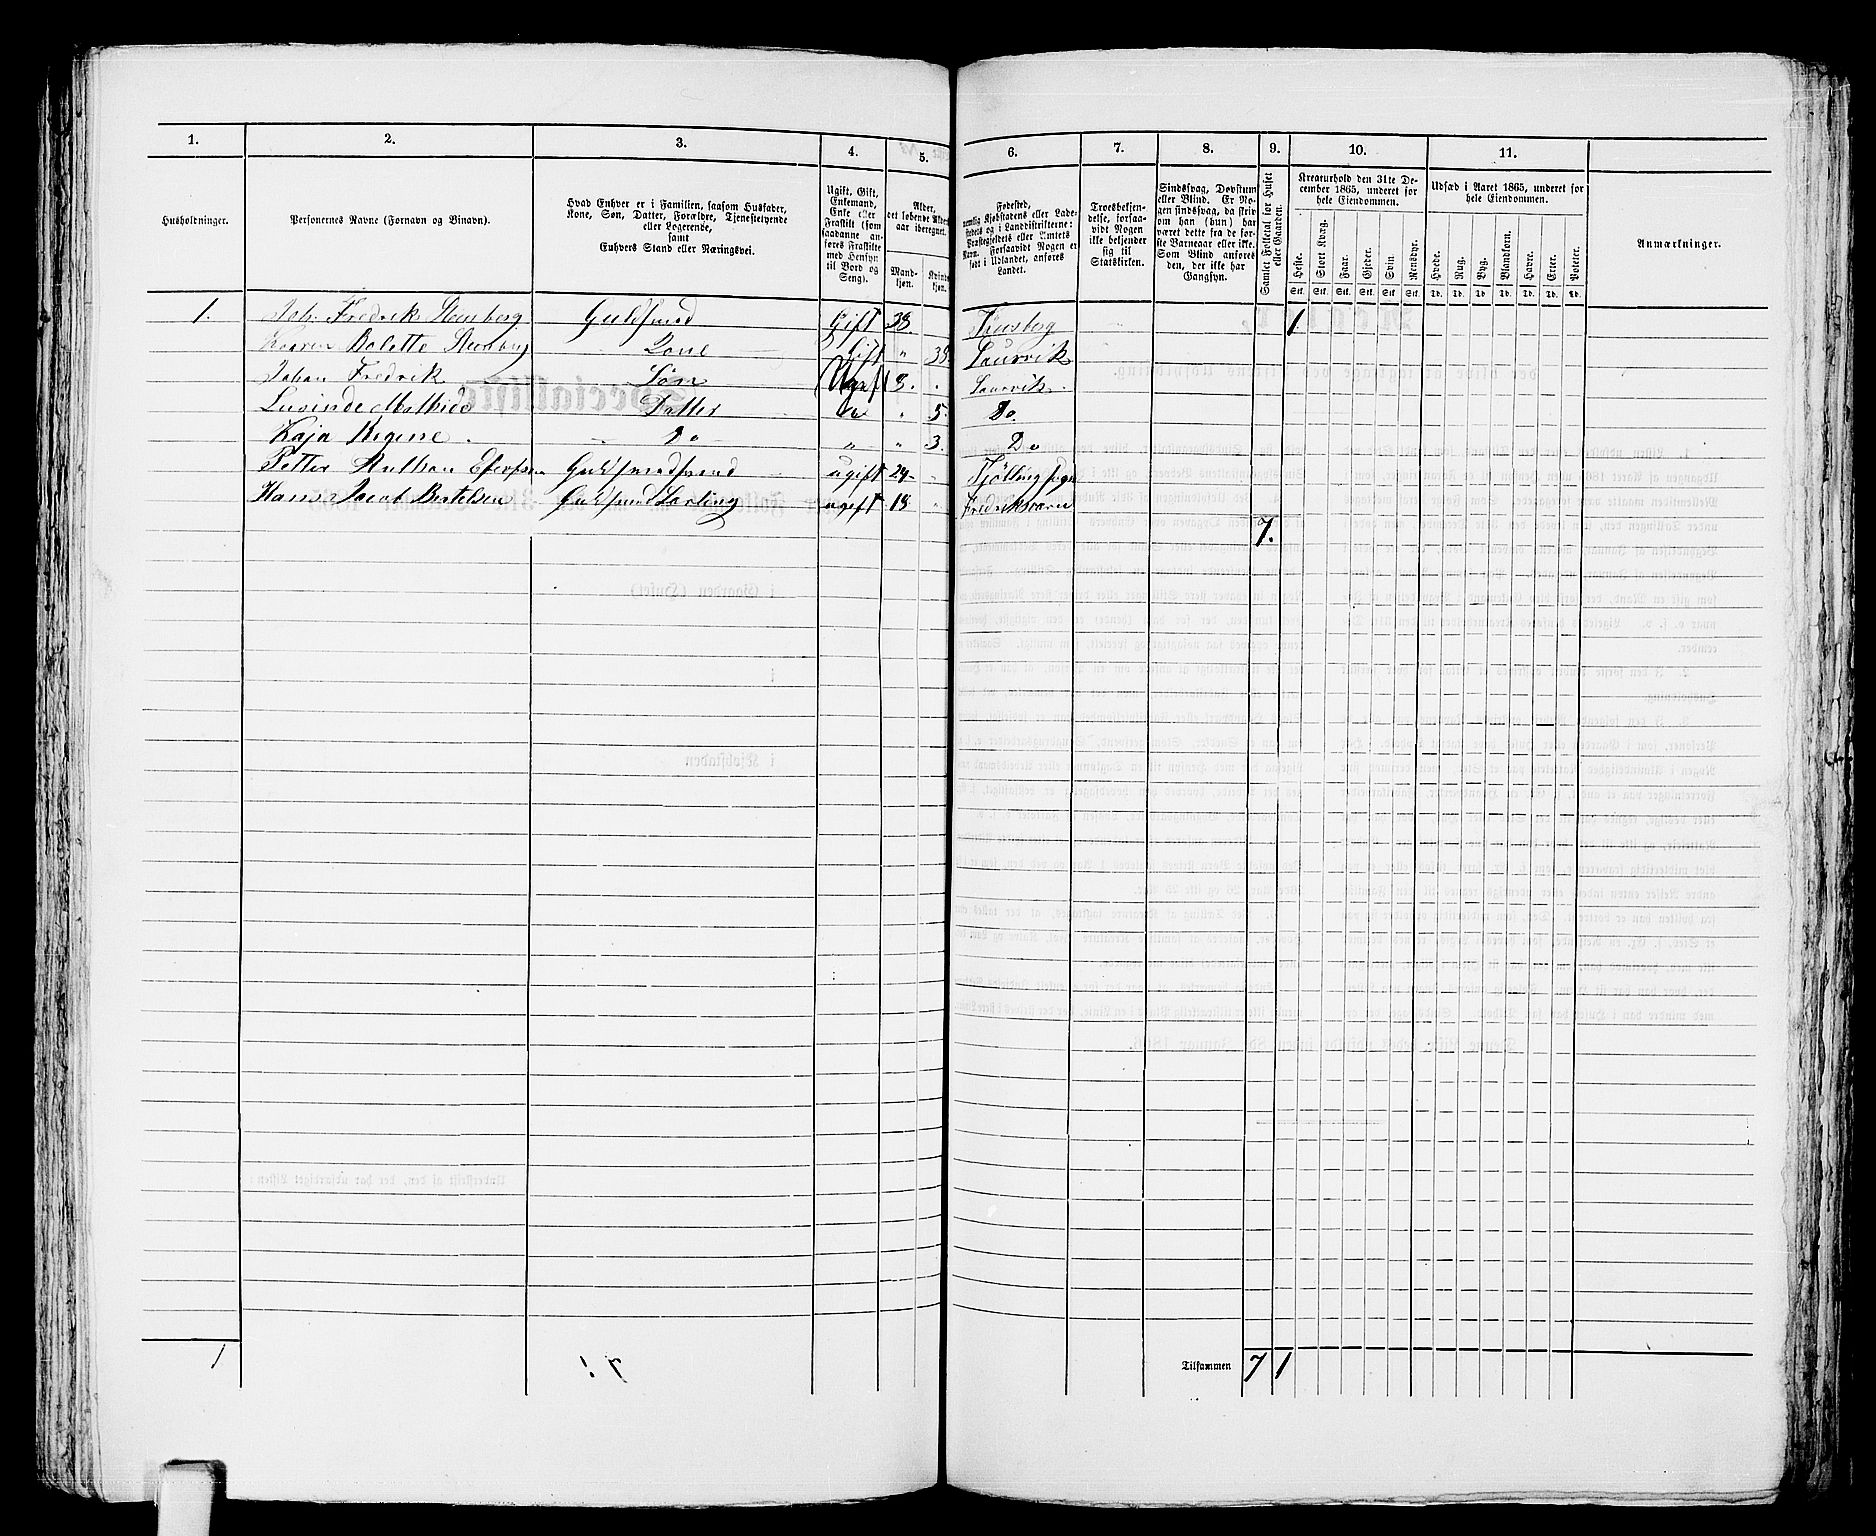 1. 2. 3. 4. 5. 6. 7. 8. 9. 10. 11.
Husholdninger.
Personernes Navne (Fornavn og Binavn).
Hvad Enhver er i Familien, saasom Husfader,
Kone, Søn, Datter, Forældre, Tjenestetyende
eller Logerende,
samt
Enhvers Stand eller Næringsvei.
Ugift, Gift,
Enkemand,
Enke eller
Fraskilt (som
saadanne an-
føres Fraskilte
med Hensyn
til Bord og
Seng).
Alder,
det løbende Alders-
aar iberegnet.
Mand-
kjøn.
Kvinde-
kjøn.
Fødested,
nemlig Kjøbstadens eller Lade-
stedets og i Landdistrikterne:
Præstegjeldets eller Amtets
Navn. Forsaavidt Nogen er
født i Udlandet, anføres
Landet.
Troesbekjen-
delse, forsaa-
vidt Nogen
ikke bekjender
sig til
Statskirken.
Sindssvag, Døvstum
eller Blind. Er No-
gen sindssvag, da skriv
om han (hun) har
været dette fra de før-
ste Barneaar eller ikke.
Som Blind anføres
den, der ikke har
Gangsyn.
Samlet Folketal for Huset
eller Gaarden.
Kreaturhold den 31te De-
cember 1865, underet for
hele Eiendommen.
Heste. Stort Kvæg. Faar. Gjeder. Svin. Rensdyr.
Stk. Stk. Stk. Stk. Stk. Stk.
Udsæd i Aaret 1865, underet for
hele Eiendommen.
Hvede. Rug. Byg. Blandkorn. Havre. Erter. Poteter.
Td. Td. Td. Td. Td. Td. Td.
Anmærkninger.
1. Joh. Fredrik Stenberg Guldsmed Gift 38. Tønsberg 1
Karen Bolette Stenberg Kone Gift " 38. Laurvik
Johan Fredrik Søn Ugift 8. " Laurvik.
Lusinde Mathilde Datter " " 5. Do.
Kaja Regine. Do " " 3. Do
Petter Ulrikson ugift 24 Tjølling sogn
Hans Jacob Bertelsen Guldsmed Lærling ugift 18 " Fredriksværn
7.
1
7!
Tilsammen 7 1